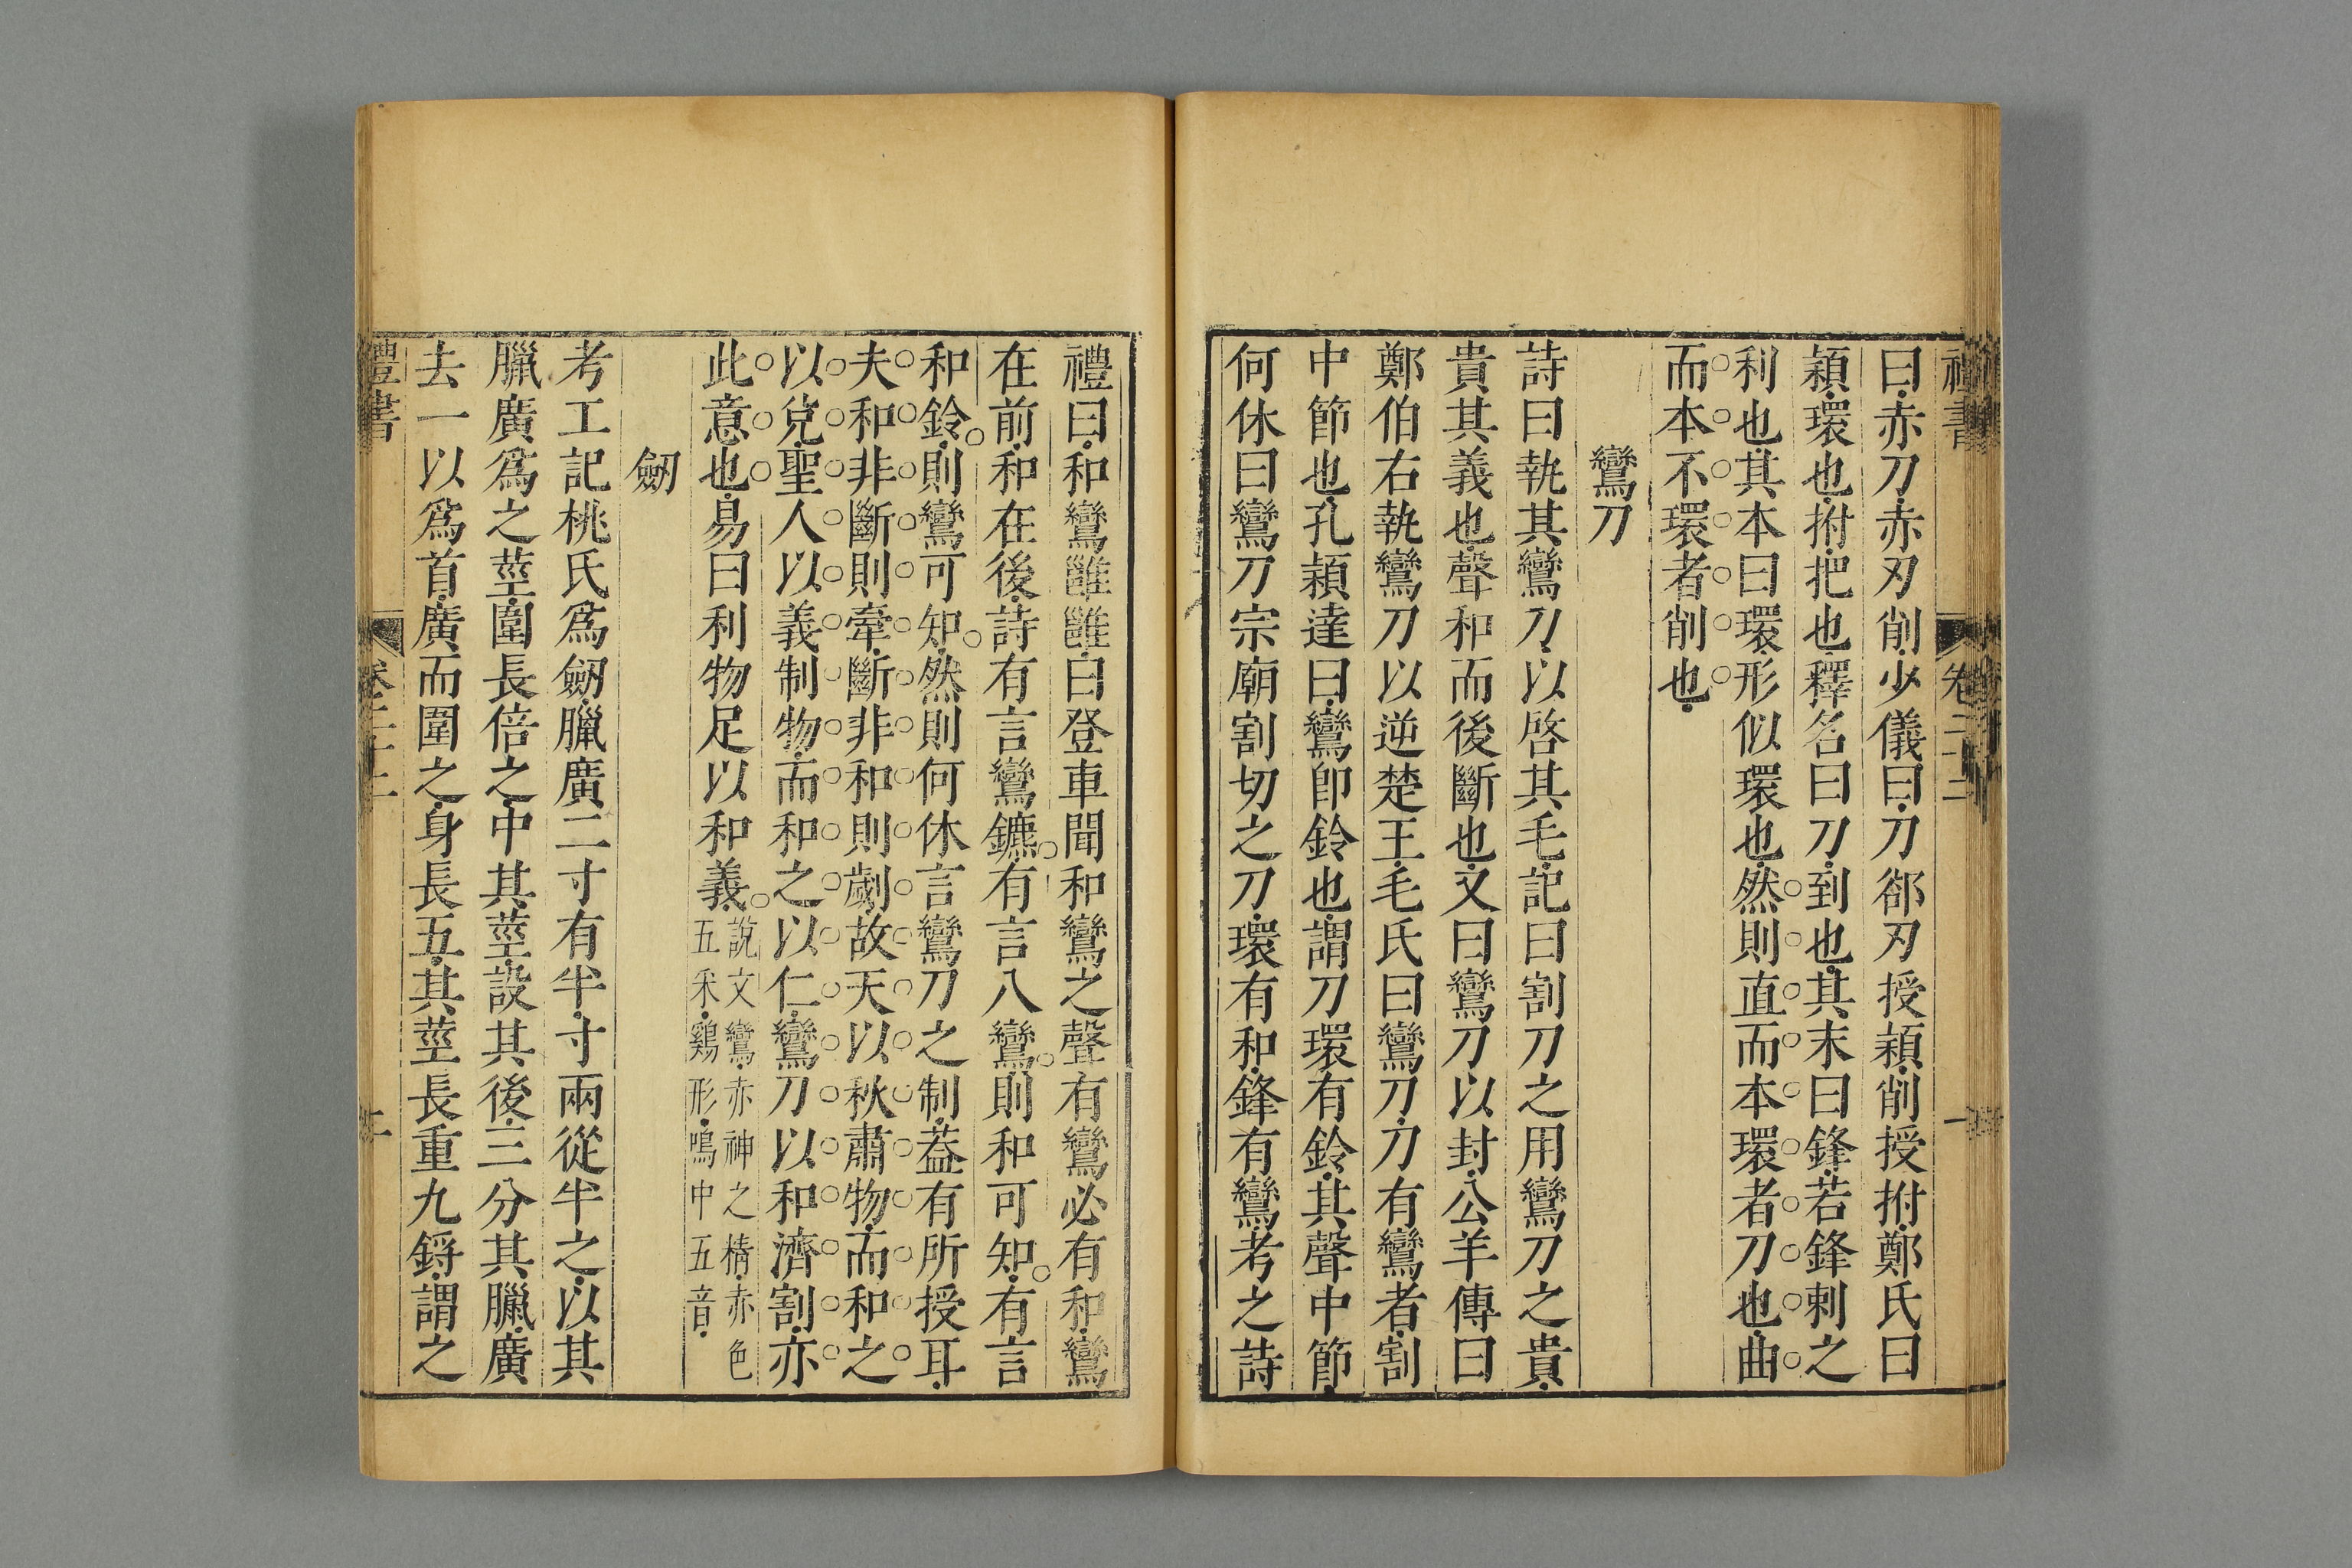 禮書
卷二十二
一
曰赤刀赤刃削少儀曰刀郤刃授穎削授拊鄭氏曰
穎環也拊把也釋名曰刀到也其末曰鋒若鋒刺之
利也其本曰環形似環也然則直而本環者刀也曲
而本不環者削也
鸞刀
詩曰執其鸞刀以啓其毛記曰割刀之用鸞刀之貴
貴其義也聲和而後斷也又曰鸞刀以封公羊傳曰
鄭伯右執鸞刀以逆楚王毛氏曰鸞刀刀有鸞者割
中節也孔穎達曰鸞卽鈴也謂刀環有鈴其聲中節
何休曰鸞刀宗廟割切之刀環有和鋒有鸞考之詩
禮曰和鸞雝雝曰登車聞和鸞之聲有鸞必有和鸞
在前和在後詩有言鸞鑣有言八鸞則和可知有言
和鈴則鸞可知然則何休言鸞刀之制葢有所授耳
夫和非斷則牽斷非和則劌故天以秋肅物而和之
以兌聖人以義制物而和之以仁鸞刀以和濟割亦
此意也易曰利物足以和義說文鸞赤神之精赤色
五采鷄形鳴中五音
劒
考工記桃氏爲劒臘廣二寸有半寸兩從半之以其
臘廣爲之莖圍長倍之中其莖設其後三分其臘廣
去一以爲首廣而圍之身長五其莖長重九鋝謂之
禮書
卷二十二
二